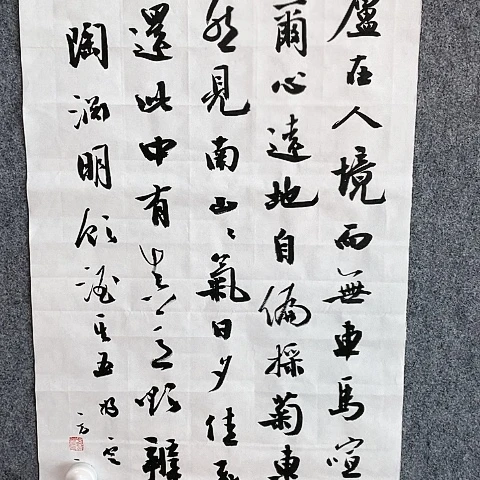 廬在人境而無車馬喧
爾心遠地自偏採菊東
然見南山山氣日夕佳飛
還此中有真意欲辯
陶淵明飲酒其五